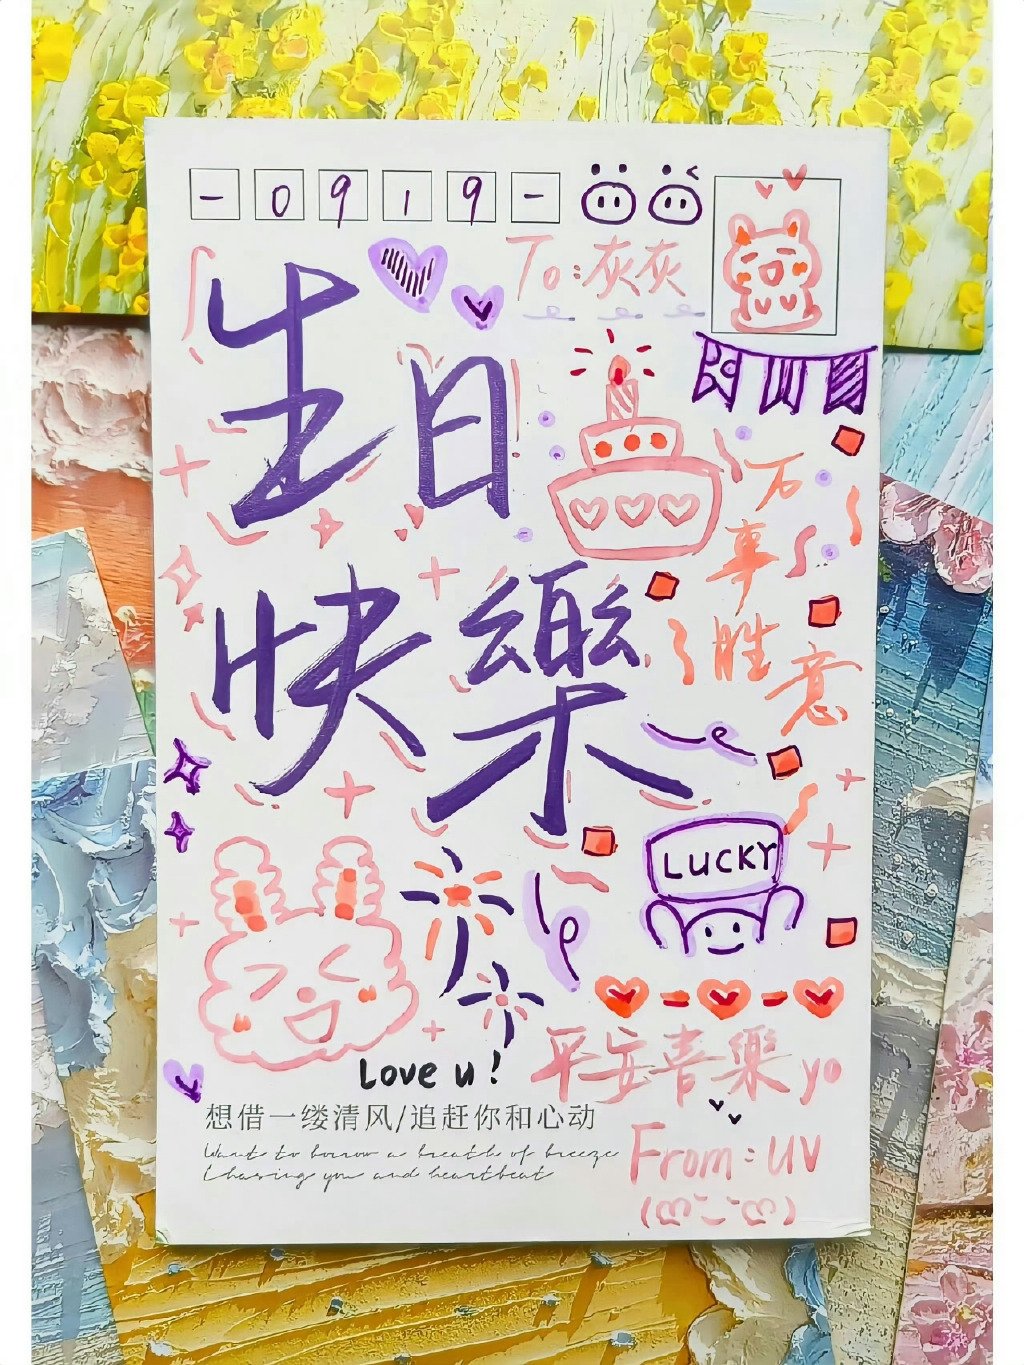 -0919-
To:灰灰
生日
快樂
万
事
胜
意
LUCKY
Love u!
平安喜樂 yo
想借一缕清风/追赶你和心动
Want to borrow a breath of breeze
Chasing you and heartbeat
From:UV